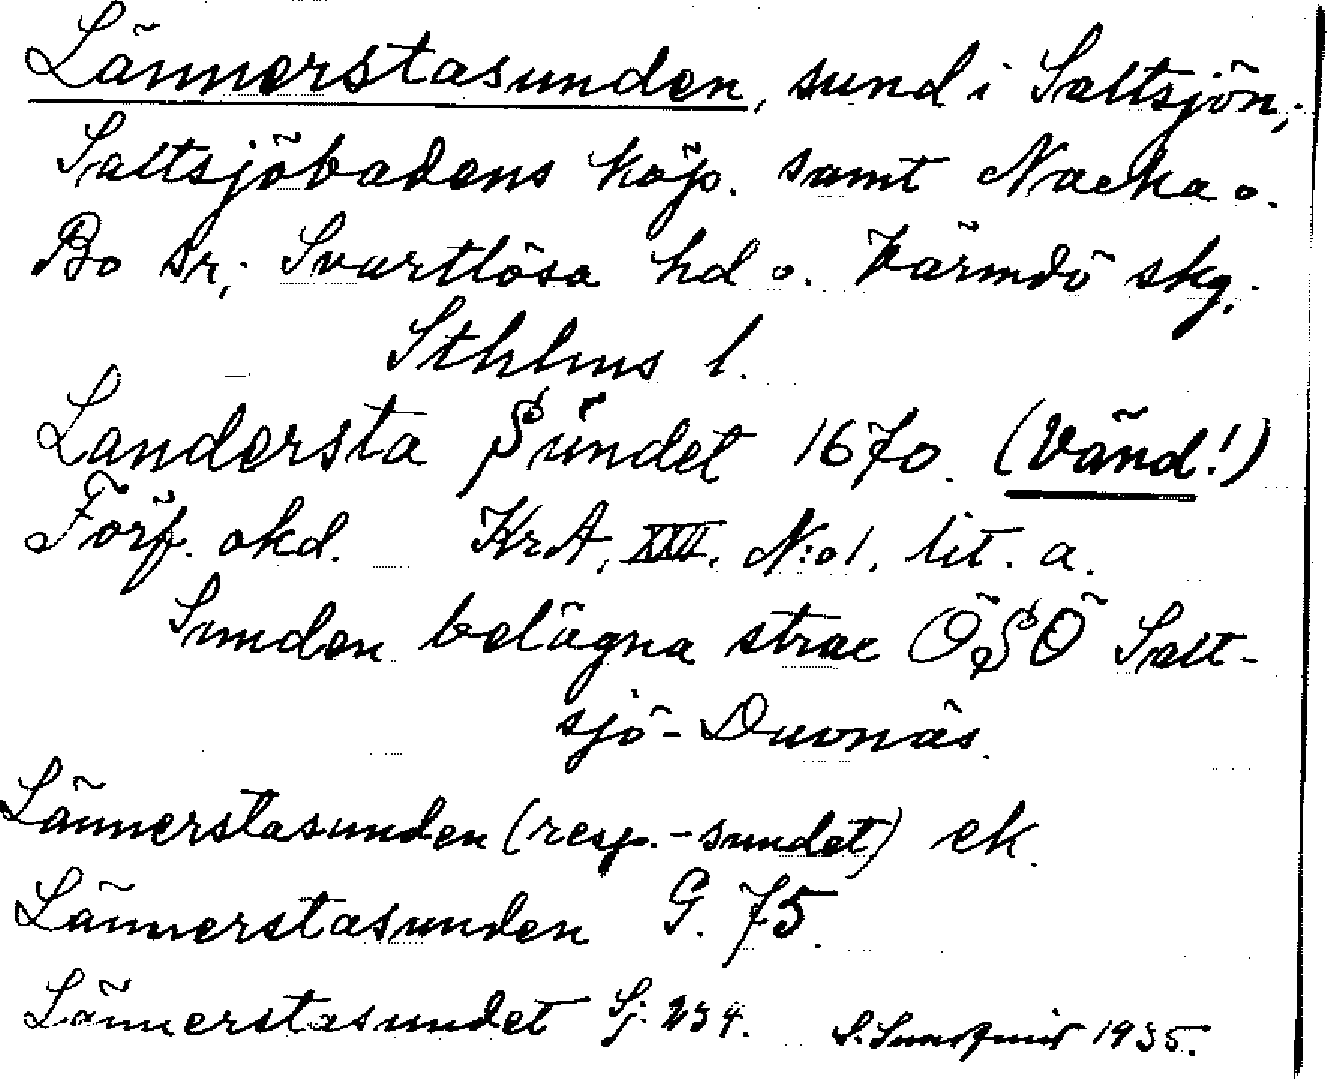 Lännerstasunden, sund i Saltsjön,
Saltsjöbadens köp. samt Nacka o.
Bo sr; Svartlösa hd o. Värmdö skg.
Sthlms l.
Landersta Sundet 1670. (Vänd!)
Förf. okd. KrA, XXV. N:o 1. lit. a.
Sunden belägna strax ÖSÖ Salt-
sjö-Duvnäs.
Lännerstasunden (resp. -sundet) ek.
Lännerstasunden G. 75.
Lännerstasundet Sj. 234. S. Sundquist 1935.